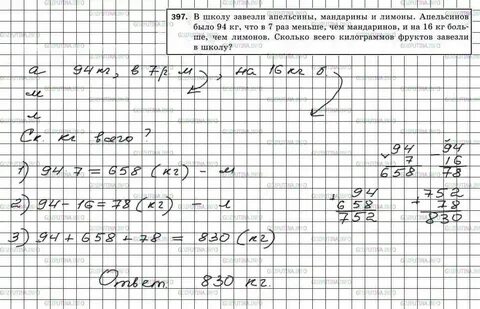 397. В школу завезли апельсины, мандарины и лимоны. Апельсинов
было 94 кг, что в 7 раз меньше, чем мандаринов, и на 16 кг боль-
ше, чем лимонов. Сколько всего килограммов фруктов завезли
в школу?
а 94 кг, в 7 р. м , на 16 кг б
м
л
Ск. кг всего?
1) 94·7 = 658 (кг) - м
2) 94-16=78(кг) - л
3) 94+658+78 = 830 (кг)
Ответ. 830 кг.
94
7
658
94
16
78
94
658
752
+752
78
830